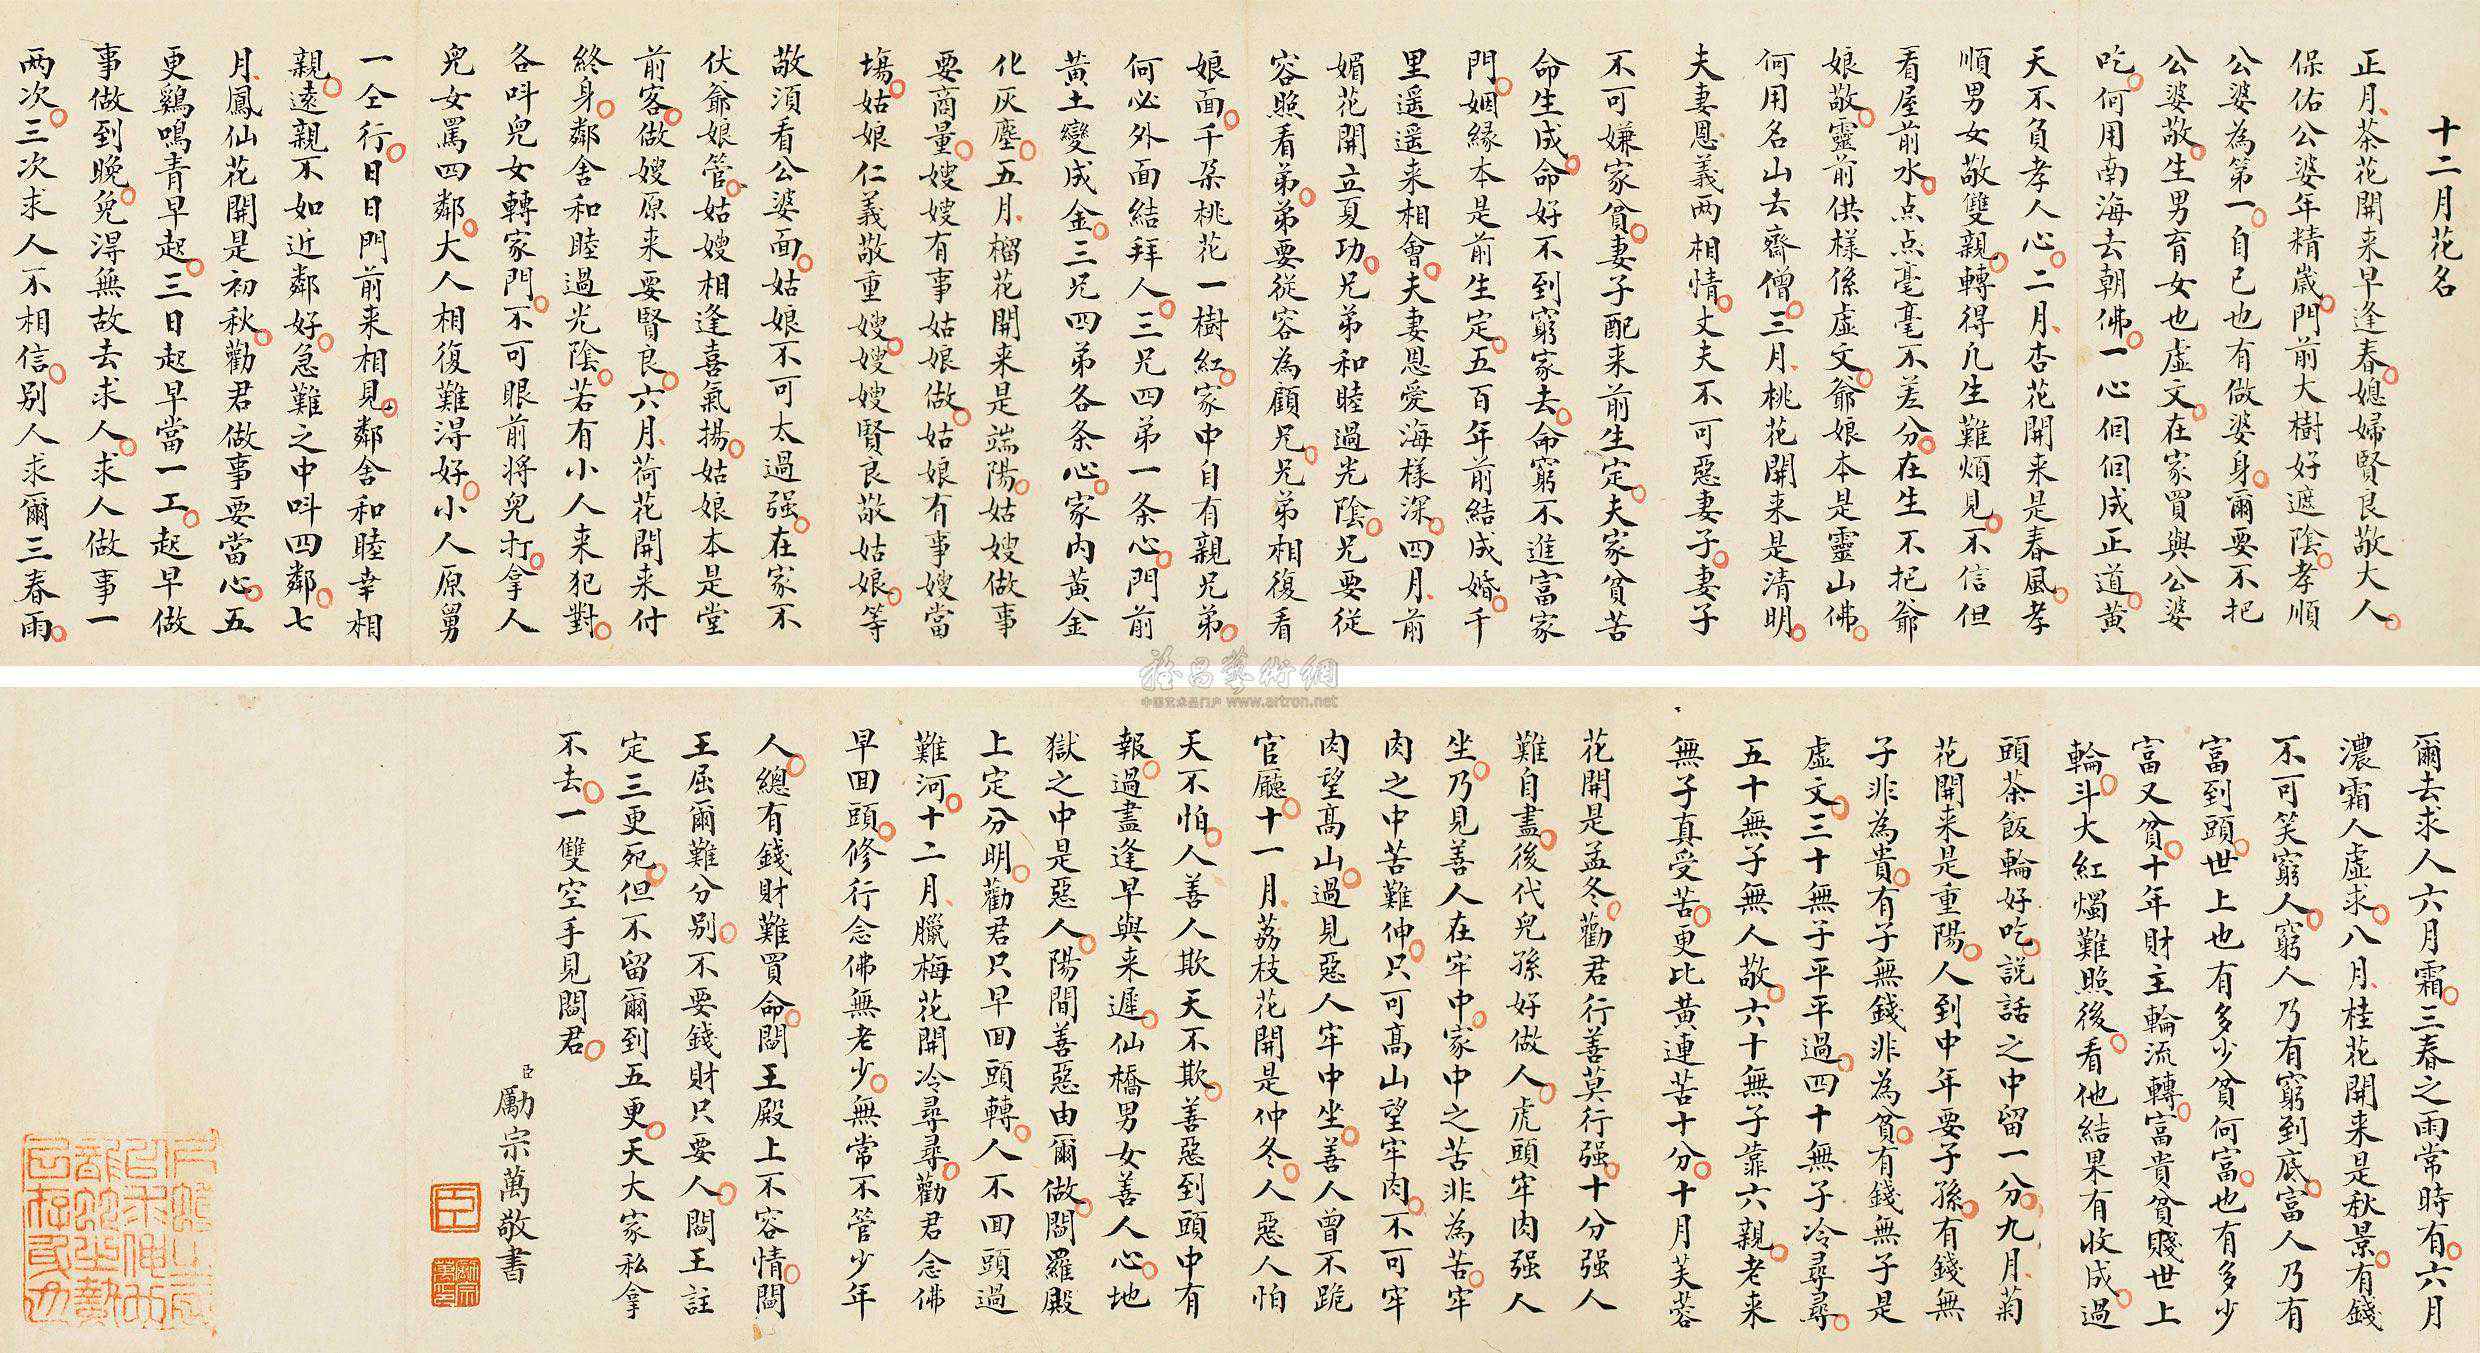 十二月花名
正月茶花開来早逢春媳婦賢良敬大人
保佑公婆年精歲門前大樹好遮陰孝順
公婆為第一自已也有做婆身爾要不把
公婆敬生男育女也虛文在家買與公婆
吃何用南海去朝佛一心佪佪成正道黃
天不負孝人心二月杏花開来是春風孝
順男女敬雙親轉得几生難煩見不信但
看屋前水点点毫毫不差分在生不把爺
娘敬靈前供樣係虛文爺娘本是靈山佛
何用名山去齋僧三月桃花開来是清明
夫妻恩義两相情丈夫不可惡妻子妻子
不可嫌家貧妻子配来前生定夫家貧苦
命生成命好不到窮家去命窮不進富家
門姻縁本是前生定五百年前結成婚千
里遥遥来相會夫妻恩愛海樣深四月前
媚花開立夏功兄弟和睦過光陰兄要従
容照看弟弟要従容為顧兄兄弟相復看
娘面千朶桃花一樹紅家中自有親兄弟
何必外面結拜人三兄四弟一条心門前
黃土變成金三兄四弟各条心家内黃金
化灰塵五月榴花開来是端陽姑嫂做事
要商量嫂嫂有事姑娘做姑娘有事嫂當
塲姑娘仁義敬重嫂嫂嫂賢良敬姑娘等
敬湏看公婆面姑娘不可太過强在家不
伏爺娘管姑嫂相逢喜氣揚姑娘本是堂
前客做嫂原来要賢良六月荷花開来付
終身鄰舍和睦過光陰若有小人来犯對
各呌兒女轉家門不可眼前将兒打拿人
兒女罵四鄰大人相復難淂好小人原舅
一仝行日日門前来相見鄰舍和睦幸相
親遠親不如近鄰好急難之中呌四鄰七
月鳳仙花開是初秋勸君做事要當心五
更鷄鳴青早起三日起早當一工起早做
事做到晚免淂無故去求人求人做事一
两次三次求人不相信别人求爾三春雨
爾去求人六月霜三春之雨常時有六月
濃霜人虛求八月桂花開来是秋景有錢
不可笑窮人窮人乃有窮到底富人乃有
富到頭世上也有多少貧何富也有多少
富又貧十年財主輪流轉富貴貧賤世上
輪斗大紅燭難照後看他結果有收成過
頭茶飯輪好吃說話之中留一分九月菊
花開来是重陽人到中年要子孫有錢無
子非為貴有子無錢非為貧有錢無子是
虛文三十無子平平過四十無子冷尋尋
五十無子無人敬六十無子靠六親老来
無子真受苦更比黃連苦十分十月芙蓉
花開是孟冬勸君行善莫行强十分强人
難自盡後代兒孫好做人虎頭牢肉强人
坐乃見善人在牢中家中之苦非為苦牢
肉之中苦難伸只可髙山望牢肉不可牢
肉望髙山過見惡人牢中坐善人曾不跪
官廳十一月荔枝花開是仲冬人惡人怕
天不怕人善人欺天不欺善惡到頭中有
報過盡逢早與来遲仙橋男女善人心地
獄之中是惡人陽間善惡由爾做閻羅殿
上定分明勸君只早回頭轉人不回頭過
難河十二月臘梅花開冷尋尋勸君念佛
早回頭修行念佛無老少無常不管少年
人總有錢財難買命閻王殿上不容情閻
王屈爾難分别不要錢財只要人閻王註
定三更死但不留爾到五更天大家私拿
不去一雙空手見閻君
臣勵宗萬敬書
臣
勵宗萬印
雅昌藝術網
中国艺术品门户 www.artron.net